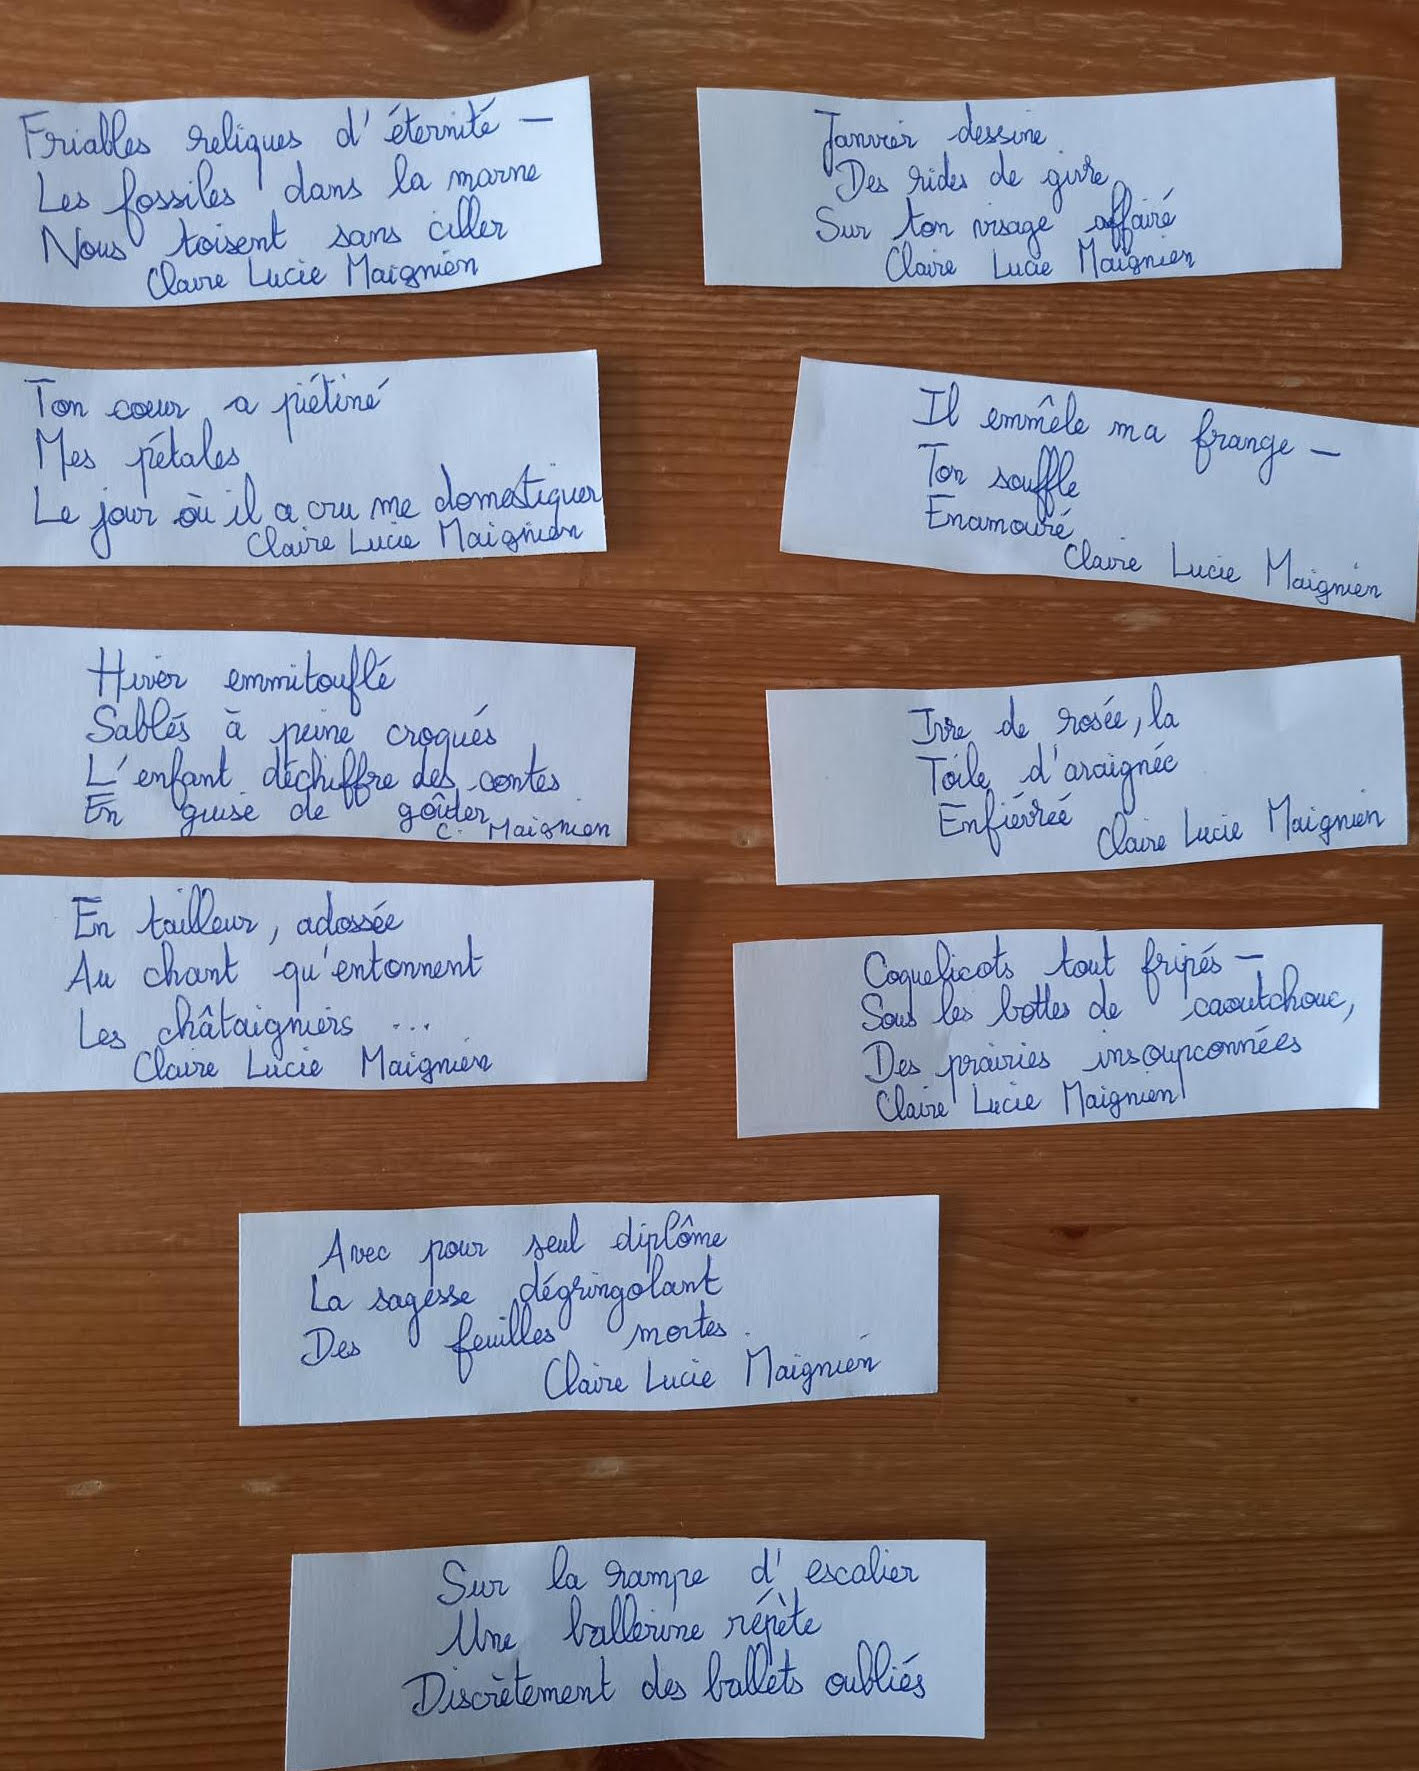 Friables reliques d'éternité —
Les fossiles dans la marne
Nous toisent sans ciller
Claire Lucie Maignien
Janvier dessine
Des rides de givre
Sur ton visage affairé
Claire Lucie Maignien
Ton coeur a piétiné
Mes pétales
Le jour où il a cru me domestiquer
Claire Lucie Maignien
Il emmêle ma frange —
Ton souffle
Enamouré
Claire Lucie Maignien
Hiver emmitouflé
Sablés à peine croqués
L'enfant déchiffre des contes
En guise de goûter
C. Maignien
Ivre de rosée, la
Toile d'araignée
Enfiévrée
Claire Lucie Maignien
En tailleur, adossée
Au chant qu'entonnent
Les châtaigniers ...
Claire Lucie Maignien
Coquelicots tout fripés —
Sous les bottes de caoutchouc,
Des prairies insoupçonnées
Claire Lucie Maignien
Avec pour seul diplôme
La sagesse dégringolant
Des feuilles mortes.
Claire Lucie Maignien
Sur la rampe d'escalier
Une ballerine répète
Discrètement des ballets oubliés